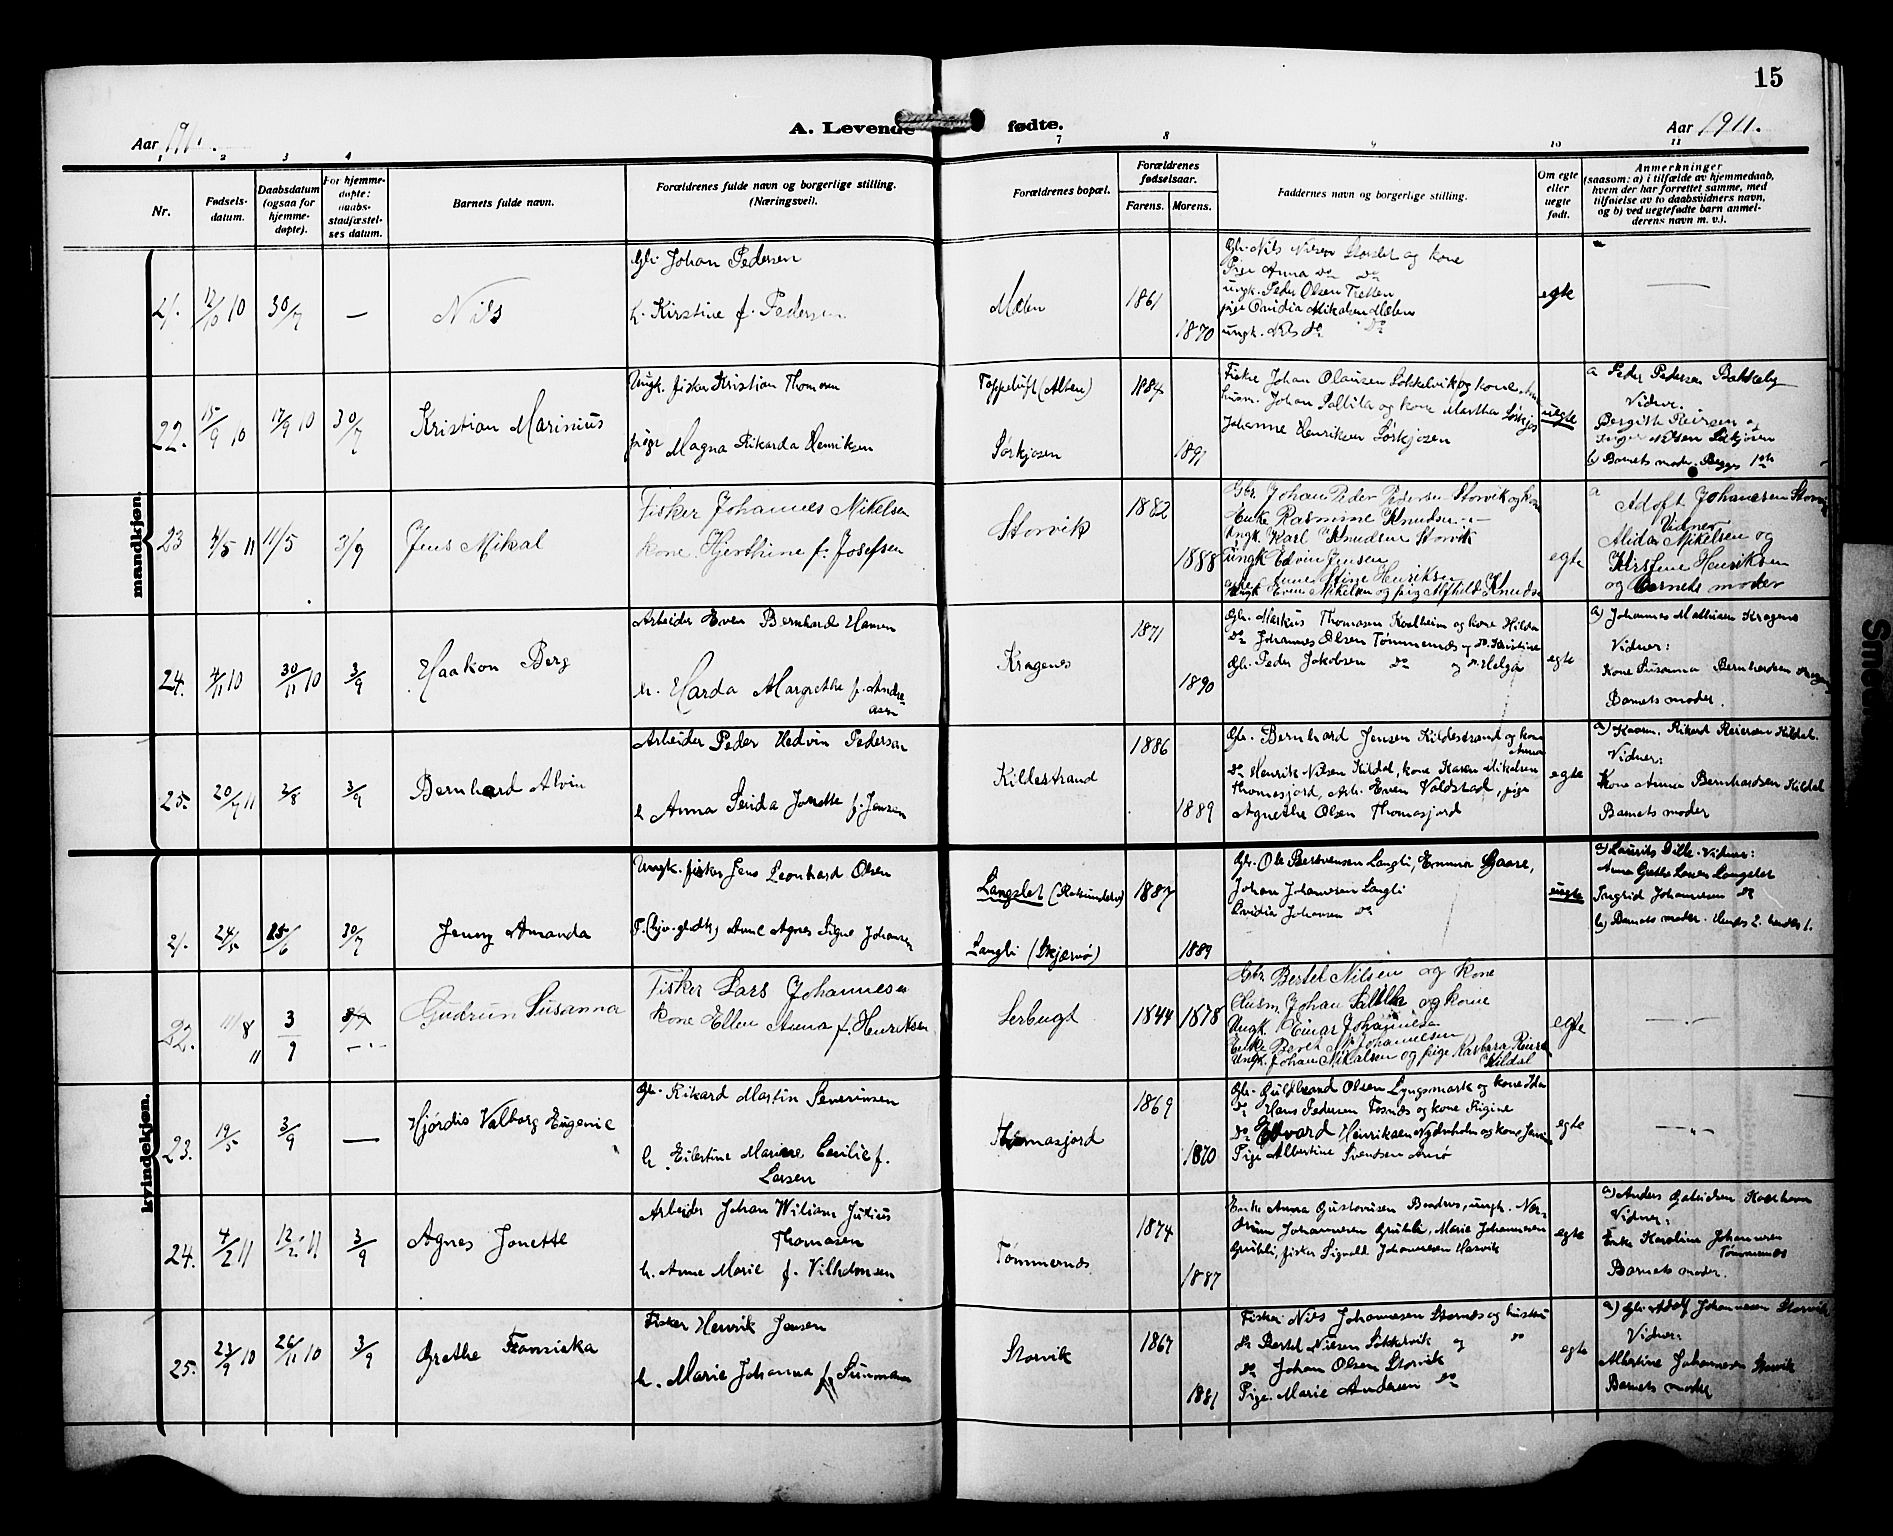 15
A. Levende fødte.
Aar 191
Aar 1911.
1 2 3 4 7 8 9 10 11
Nr.
Fødsels-
datum.
Daabsdatum
(ogsaa for
hjemme-
døpte).
For hjemme-
døpte:
daabs-
stadfæstel-
ses datum.
Barnets fulde navn.
Forældrenes fulde navn og borgerlige stilling.
(Næringsvei).
Forældrenes bopæl.
Forældrenes
fødselsaar.
Farens. Morens.
Faddernes navn og borgerlige stilling.
Om egte
eller
uegte
født.
Anmerkninger
(saasom: a) i tilfælde av hjemmedaab,
hvem der har forrettet samme, med
tilføielse av to daabsvidners navn,
og b) ved uegtefødte barn anmel-
derens navn m. v.).
mandkjøn.
21. 12/10 10 30/7 — Nils
Gbr. Johan Pedersen
h. Kirstine f. Pedersen
Mælen 1861 1870
Gbr. Nils Nilsen Storslet og kone
Pige Anna do do
ungk. Peder Olsen Tretten
pige Ovidia Mikalsen Mælen
ungk. Nils do do
egte —
22. 15/9 10 17/9 10 30/7 Kristian Marinius
Ungk. fisker Kristian Thomasen
pige Magna Rikarda Henriksen
Toppeluft (Alten) 1884
Sørkjosen 1891
Fisker Johan Olausen Sokkelvik og kone
husm. Johan Saltila og kone Martha Sørkjos
Johanne Henriksen Sørkjosen
uegte
a Peder Pedersen Bakkeby
Vidner.
Bergithe Reiersen og
Inger Nilsen Sørkjosen
b) Barnets moder. Begges 1ste
23 4/5 11 11/5 3/9 Jens Mikal
Fisker Johannes Mikelsen
kone Hjerthine f. Josefsen
Storvik 1882 1888
Gbr. Johan Peder Pedersen Storvik og kone
Enke Rasmine Knudsen
Ungk. Karl Knudsen Storvik
Ungk Edvin Jensen
Anne Stine Henriksen
Ungk Even Mikelsen og pig Alfhild Knudsen
egte
a Adolf Johansen Storvik
Vidner
Alida Mikelsen og
Kirstine Henriksen
og Barnets moder
24. 4/11 10 30/11 10 3/9 Haakon Berg
Arbeider Even Bernhard Hansen
h. Harda Margrethe f. Andre-
asen
Kragenes 1871 1890
Gbr. Markus Thomasen Kvalheim og kone Hilda
do Johannes Olsen Tømmernæs og do Kristine
Gbr. Peder Jakobsen do og do Helga
egte
a) Johannes Mathisen Kragenes
Vidner:
Kone Susanna Bernhardsen Kragenes
Barnets moder.
25. 20/7 11 2/8 3/9 Bernhard Alvin
Arbeider Peder Hedvin Pedersen
h Anna Serida Jonette f. Jensen
Killestrand 1886 1889
Gbr. Bernhard Jensen Kildestrand og kone
Anna
do Henrik Nilsen Kildal, kone Karen Mikalsen
Thomasjord, Arb. Even Valdstad, pige
Agnethe Olsen Thomasjord
egte
a) Rikard Reiersen Kildal.
Vidner:
Kone Anna Bernhardsen Kildal
Barnets moder
kvindekjøn.
21. 24/5 25/6 30/7 Jenny Amanda
Ungk. fisker Jens Leonhard Olsen
Anne Agnes Signe Johansen
Langslet (Rotsunderv) 1887
Langli (Skjærvø) 1889
Gbr. Ole Bersvensen Langli, Emma Gaare,
Johan Johannesen Langli
Ovidia Johansen do
uegte
a) Laurits Dille. Vidner:
Anna Grethe Larsen Langslet
Ingrid Johannesen do
b) Barnets moder. Hands 2. hendes 1.
22. 11/8 11 3/9 Gudrun Susanna
Fisker Lars Johannesen
kone Ellen Anna f. Henriksen
Serbugt 1844 1878
Gbr. Bertel Nilsen og kone
Husm. Johan Salttila og kone
Ungk. Einar Johannesen
Enke Beret M. Johannesen
Ungk. Johan Mikalsen og pige Barbara Reiers
Kildal
egte —
23. 19/5 3/9 — Hjördis Valborg Eugenie
Gbr. Rikard Martin Severinsen
h. Eilertine Marene Cecilie f.
Larsen
Thomasjord 1869 1870
Gbr. Guldbrand Olsen Lyngsmark og kone Ida
do Hans Pedersen Fosnæs og kone Rigine
do Edvard Henriksen Nyholm og kone
Pige Albertine Svendsen Arnø
egte —
24. 4/2 11 12/2 11 3/9 Agnes Jonette
Arbeider Johan Wiliam Julius
Thomasen
h. Anne Marie f. Vilhelmsen
Tømmernæs 1874 1887
Enke Anna Gustavsen Bondnes, ungk. Nor-
drum Johannesen Grubli, Marie Johannesen
Grubli, fisker Sigvald Johannesen Storvik
egte
a) Anders Gabrielsen Havnnes
Vidner:
Enke Karoline Johannesen
Tømmernæs
Barnets moder.
25. 23/9 10 26/11 10 3/9 Grethe Fransiska
Fisker Henrik Jensen
h. Marie Johanna f. Simonsen
Storvik 1867 1881
Fisker Nils Johannesen Stornes og hustru
do Bertel Nilsen Sokkelvik og do
do Johan Olsen Storvik
Pige Marie Andersen do
egte
a) Gbr Adolf Johannesen Storvik
Vidner:
Albertine Johannesen Storvik
Barnets moder